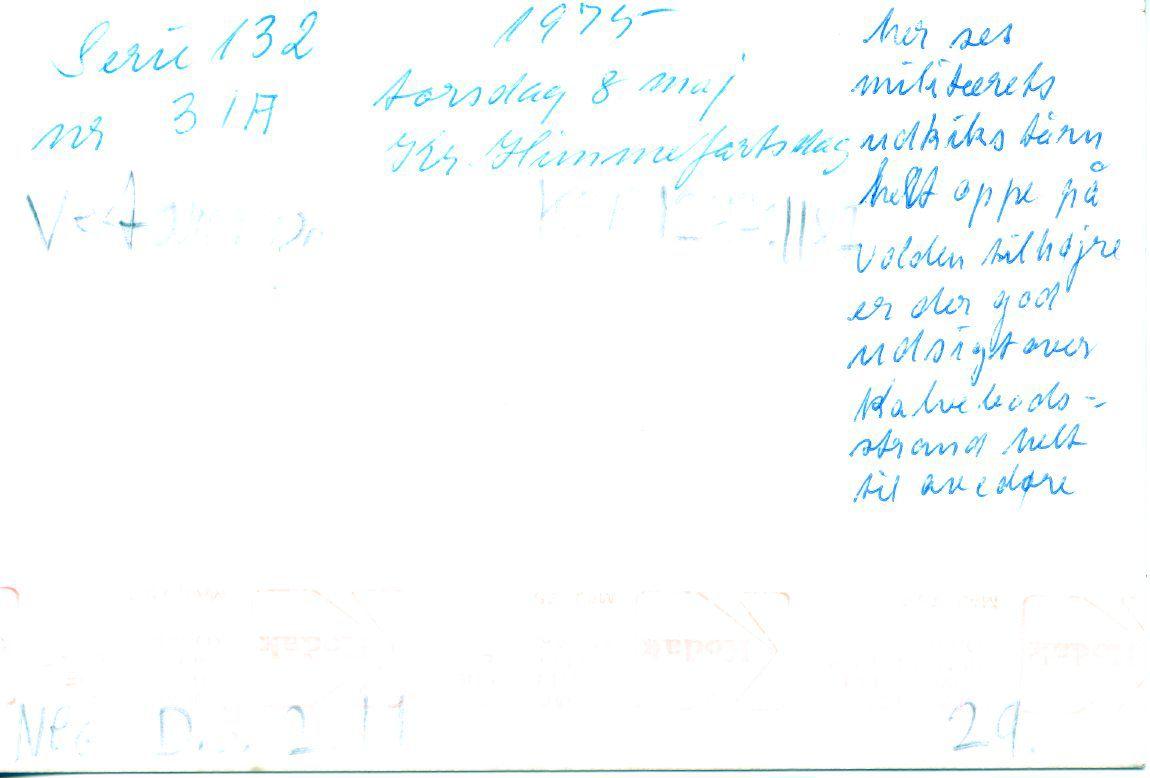 Serie 132
nr 31A
1975
torsdag 8 maj
Kr. Himmelfartsdag
her ses
militærets
udkiks tårn
helt oppe på
volden til højre
er der god
udsigt over
Kalvebods=
strand helt
til avedøre
Neg D. 2 11
29.
Kodak
Kodak
Kodak